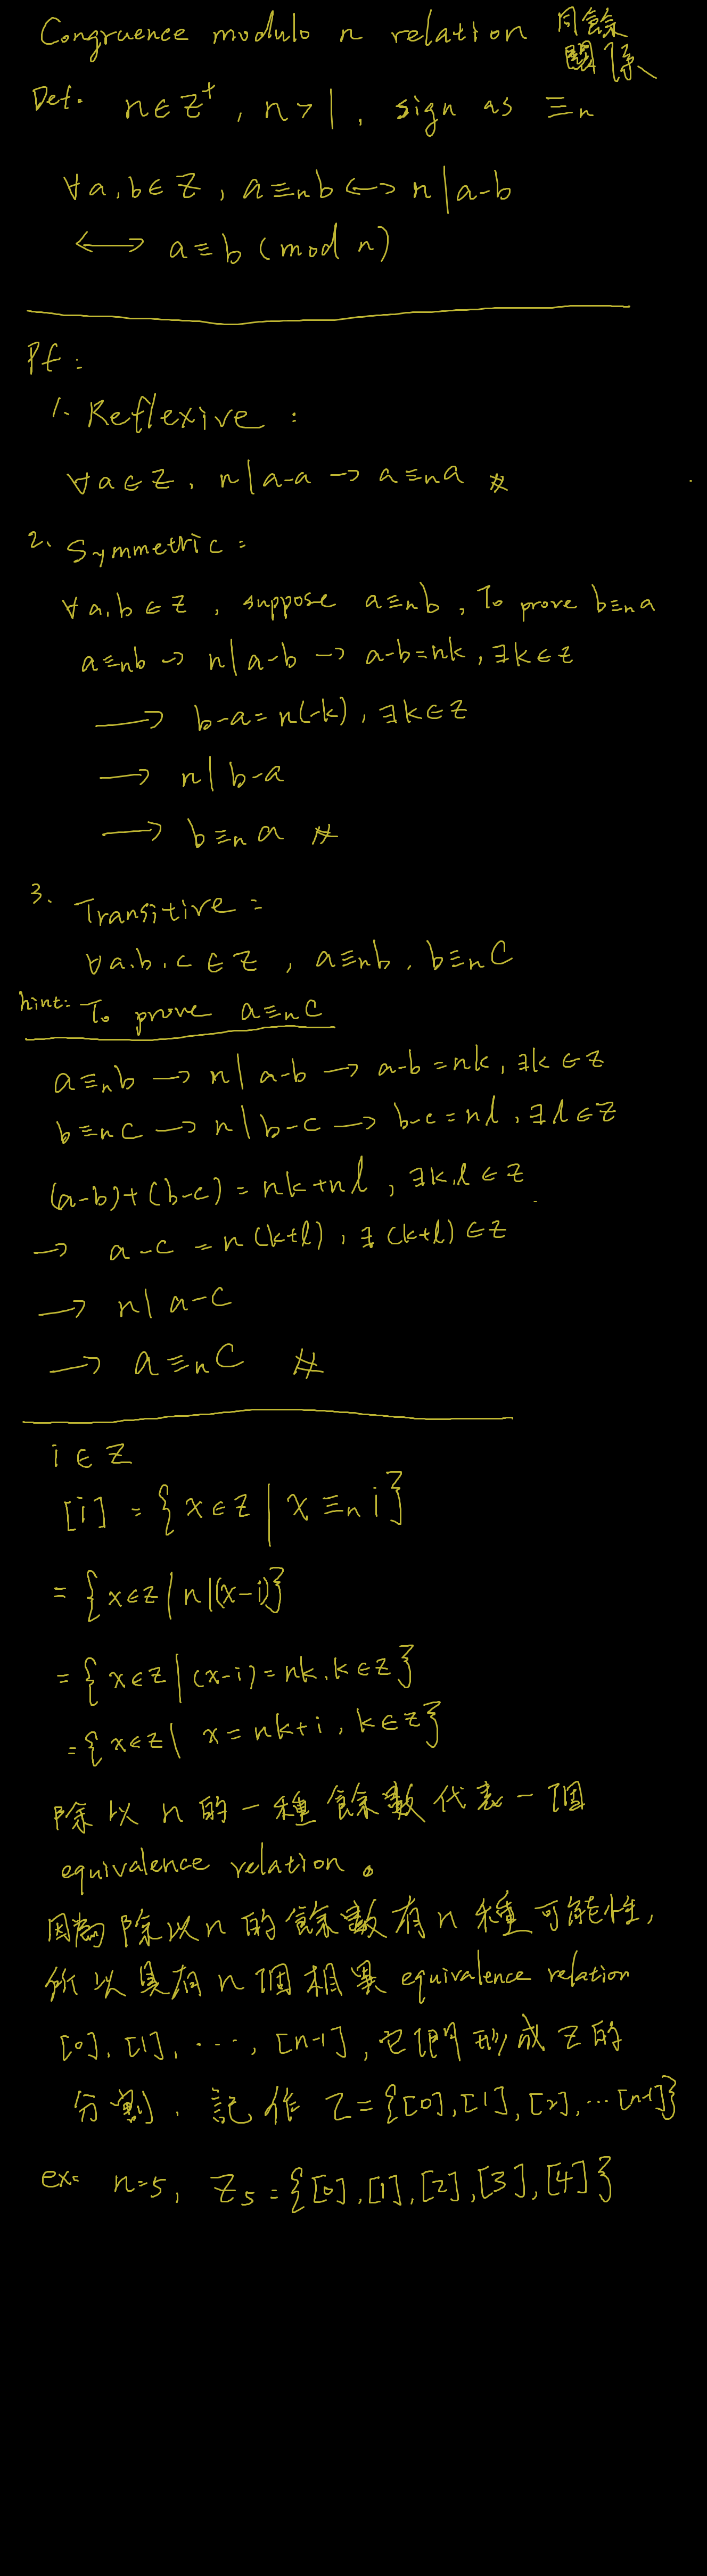 Congruence modulo n relation 同餘
關係
Def. n∈Z⁺, n>1, sign as ≡ₙ
∀a,b∈Z, a≡ₙb ⟷ n|a-b
⟷ a≡b (mod n)
Pf:
1. Reflexive:
∀a∈Z, n|a-a → a≡ₙa ⋕
2. Symmetric:
∀a,b∈Z, suppose a≡ₙb, To prove b≡ₙa
a≡ₙb → n|a-b → a-b=nk, ∃k∈Z
→ b-a=n(-k), ∃k∈Z
→ n|b-a
→ b≡ₙa ⋕
3. Transitive:
∀a,b,c∈Z, a≡ₙb, b≡ₙC
hint: To prove a≡ₙC
a≡ₙb → n|a-b → a-b=nk, ∃k∈Z
b≡ₙC → n|b-C → b-c=nl, ∃l∈Z
(a-b)+(b-c)=nk+nl, ∃k,l∈Z
→ a-c=n(k+l), ∃(k+l)∈Z
→ n|a-C
→ a≡ₙC ⋕
i∈Z
[i]={x∈Z|x≡ₙi}
={x∈Z|n|(x-i)}
={x∈Z|(x-i)=nk,k∈Z}
={x∈Z|x=nk+i,k∈Z}
除以n的一種餘數代表一個
equivalence relation。
因為除以n的餘數有n種可能性,
所以具有n個相異equivalence relation
[0],[1],⋯,[n-1],它們形成Z的
分割,記作Z={[0],[1],[2],⋯[n-1]}
ex: n=5, Z₅={[0],[1],[2],[3],[4]}